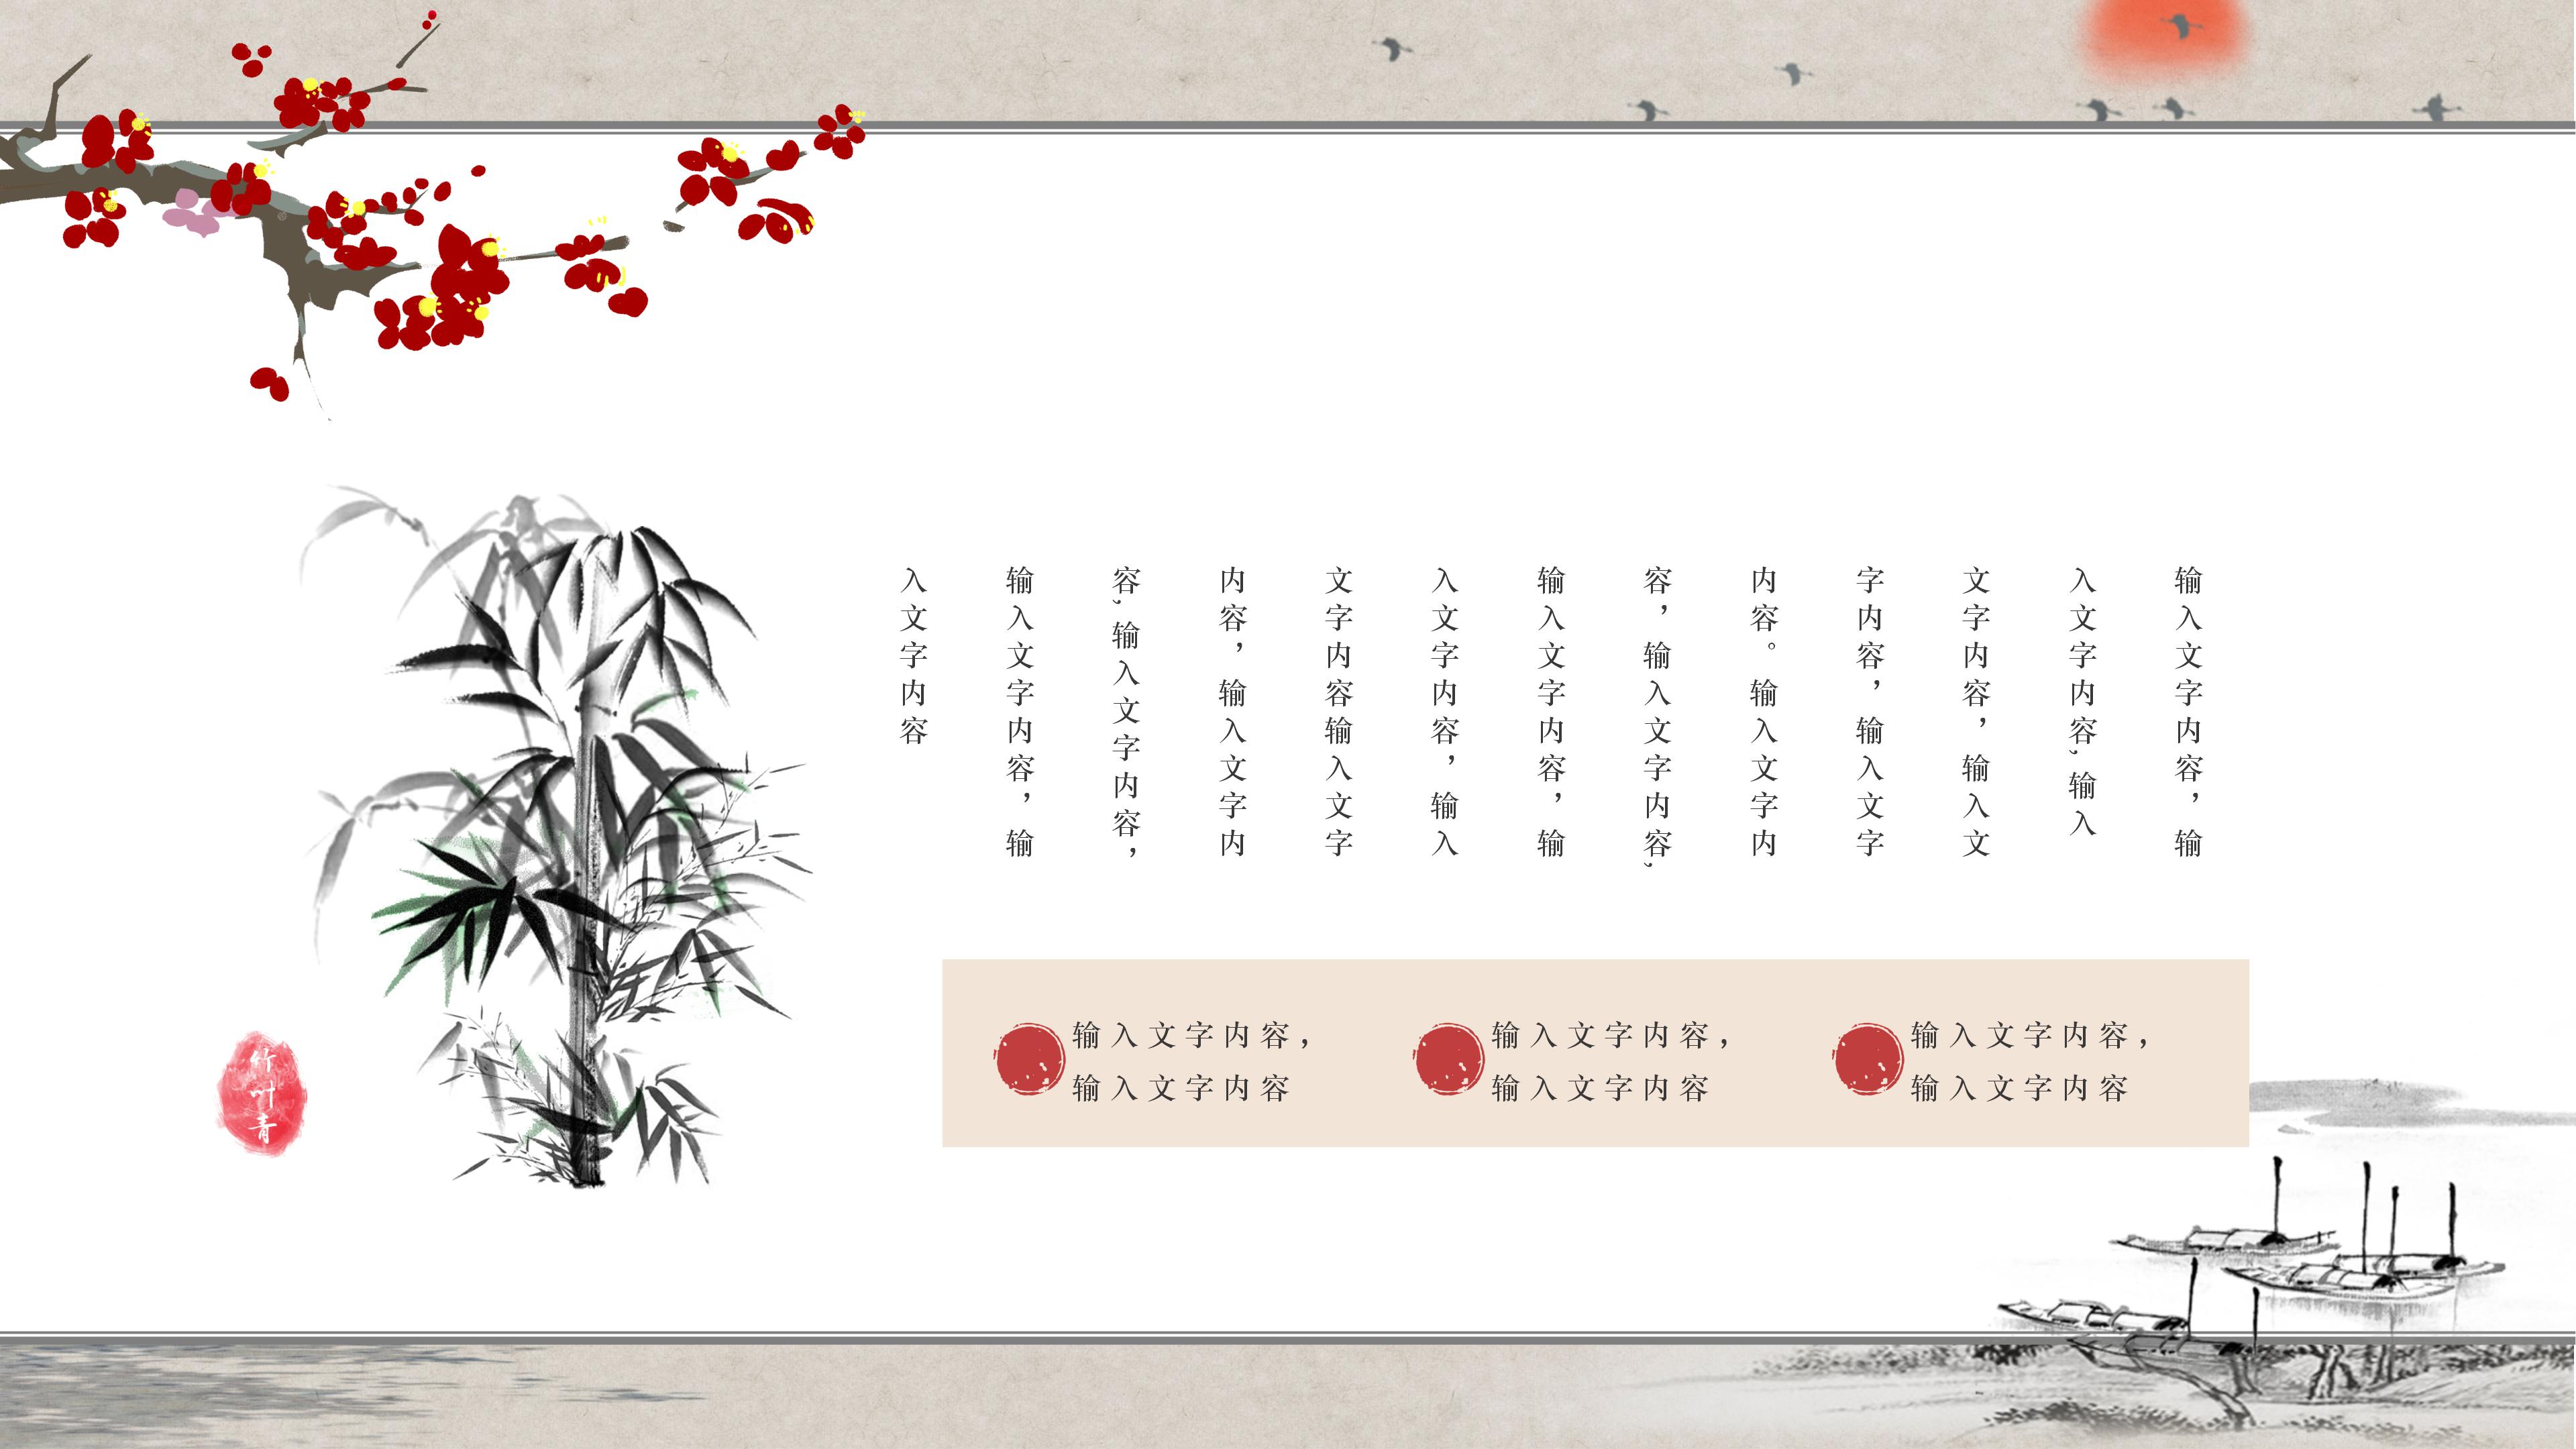 输入文字内容，输
入文字内容,输入
文字内容，输入文
字内容，输入文字
内容。输入文字内
容，输入文字内容,
输入文字内容，输
入文字内容，输入
文字内容输入文字
内容，输入文字内
容,输入文字内容，
输入文字内容，输
入文字内容
输入文字内容，
输入文字内容
输入文字内容，
输入文字内容
输入文字内容，
输入文字内容
竹叶青